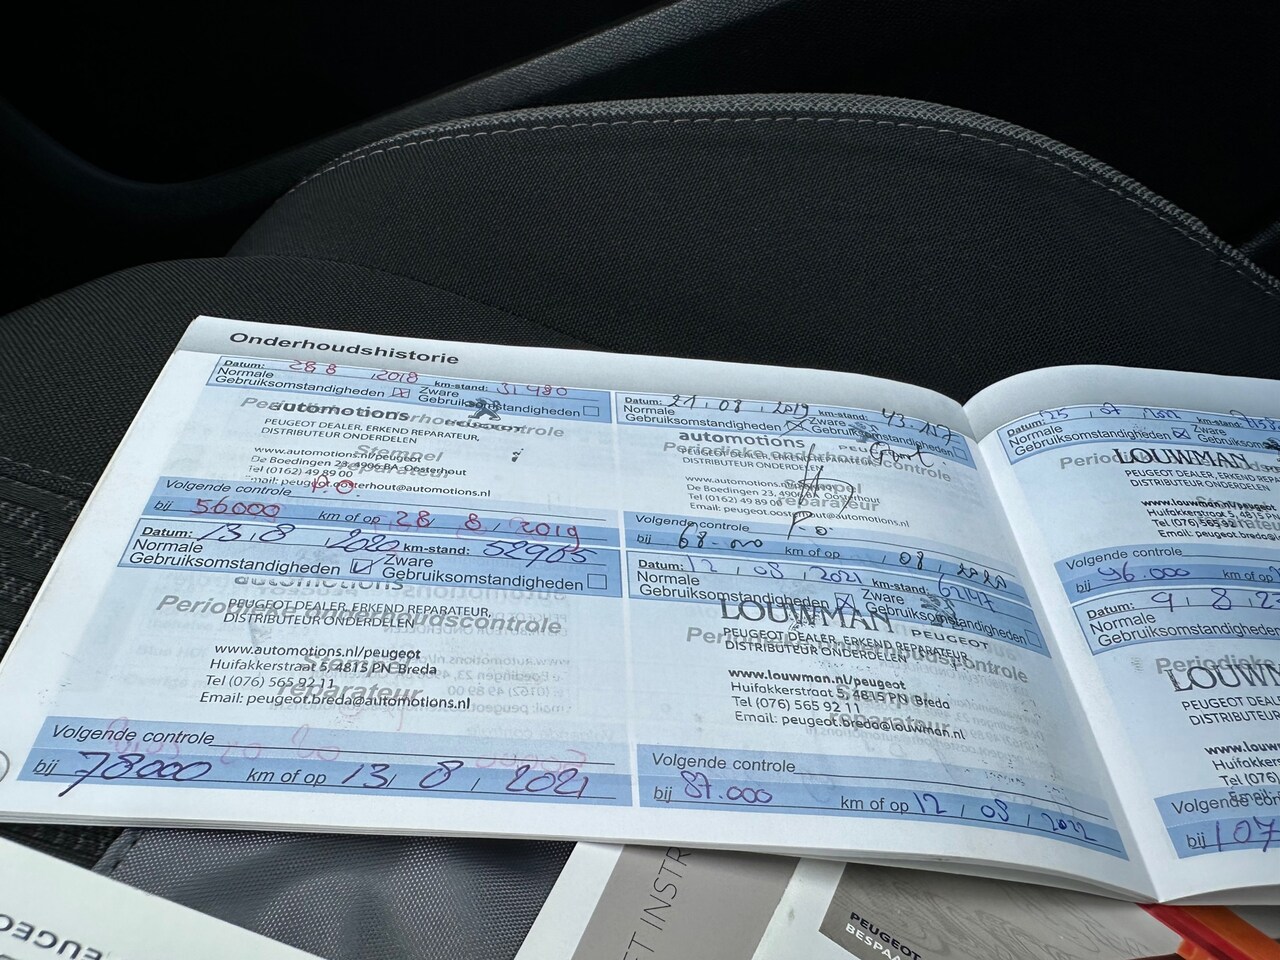 Onderhoudshistorie
Datum: 28 8 2018 km-stand: 31 480
Normale Gebruiksomstandigheden Zware Gebruiksomstandigheden
Periodieke onderhoudscontrole
automotions
PEUGEOT
PEUGEOT DEALER, ERKEND REPARATEUR,
DISTRIBUTEUR ONDERDELEN
Stempel
reparateur
www.automotions.nl/peugeot
De Boedingen 23, 4906 BA Oosterhout
Tel (0162) 49 89 00
Email: peugeot.oosterhout@automotions.nl
Volgende controle
bij 56000 km of op 28 8 2019
Datum: 21 08 2019 km-stand: 43.157
Normale Gebruiksomstandigheden Zware Gebruiksomstandigheden
automotions
Periodieke onderhoudscontrole
PEUGEOT DEALER, ERKEND REPARATEUR,
DISTRIBUTEUR ONDERDELEN
www.automotions.nl/peugeot
De Boedingen 23, 4906 BA Oosterhout
Tel (0162) 49 89 00
reparateur
Email: peugeot.oosterhout@automotions.nl
Volgende controle
bij 68.000 km of op 08 2020
Datum: 13 8 2020 km-stand: 52965
Normale Gebruiksomstandigheden Zware Gebruiksomstandigheden
automotions
PEUGEOT DEALER, ERKEND REPARATEUR,
Periodieke onderhoudscontrole
DISTRIBUTEUR ONDERDELEN
www.automotions.nl/peugeot
Stempel
Huifakkerstraat 5, 4815 PN Breda
Tel (076) 565 92 11
reparateur
Email: peugeot.breda@automotions.nl
Volgende controle
bij 78000 km of op 13 8 2021
Datum: 12 08 2021 km-stand: 62147
Normale Gebruiksomstandigheden Zware Gebruiksomstandigheden
LOUWMAN PEUGEOT
Periodieke onderhoudscontrole
PEUGEOT DEALER, ERKEND REPARATEUR,
DISTRIBUTEUR ONDERDELEN
www.louwman.nl/peugeot
Huifakkerstraat 5, 4815 PN Breda
Tel (076) 565 92 11
reparateur
Email: peugeot.breda@louwman.nl
Volgende controle
bij 87.000 km of op 12 08 2022
Datum: 25 07
Normale
Gebruiksomstandigheden
LOUWMAN
PEUGEOT DEALER, ERKEND
DISTRIBUTEUR ONDERDELEN
www.louwman.nl/peugeot
Huifakkerstraat 5, 4815
Tel (076) 565 92
Email: peugeot.breda@
Volgende controle
bij 96.000 km of op
Datum: 9 8
Normale
Gebruiksomstandigheden
Periodieke
LOUWM
PEUGEOT
DISTRIBUTEUR
www.louw
Huifakker
Tel (076)
Email:
Volgende con
bij 107
PEUGEOT
ET INSTR
PEUGEOT
BESPA